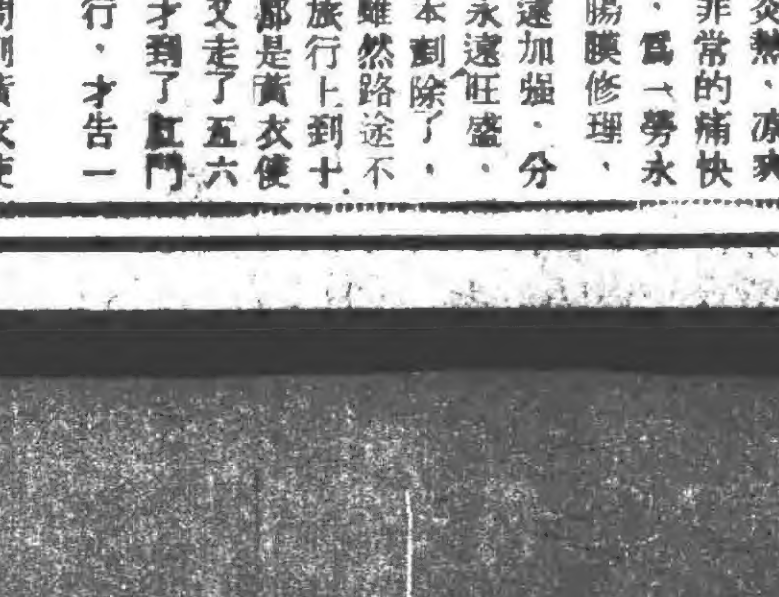 炎熱，凉爽
非常的痛快
，爲一勞永
腸膜修理，
遠加强，分
永遠旺盛，
本剷除了，
雖然路途不
旅行上到十
都是黃衣使
又走了五六
才到了肛門
行，才告一
黃衣使